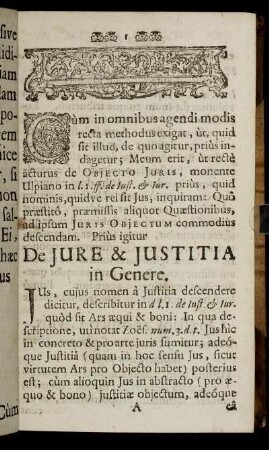 1
Cùm in omnibus agendi modis
recta methodus exigat, ùt, quid
sit illud, de quo agitur, priùs in-
dagetur; Meum erit, ùt rectè
acturus de OBJECTO JURIS, monente
Ulpiano in l. 1. ff. de Iust. & Iur. priùs, quid
nominis, quidve rei sit Jus, inquiram: Quô
præstitô, præmissis aliquot Quæstionibus,
ad ipsum JURIS OBJECTUM commodiùs
descendam. Priùs igitur
De JURE & JUSTITIA
in Genere.
JUs, cujus nomen à Justitia descendere
dicitur, describitur in d l. 1. de Iust & Iur.
quòd sit Ars æqui & boni: In qua de-
scriptione, uti notat Zoës. num. 3. d. t. Jus hic
in concreto & pro arte juris sumitur; adeó-
que Justitiâ (quam in hoc sensu Jus, sicut
virtutem Ars pro Objecto habet) posterius
est; cùm alioquin Jus in abstracto (pro æ-
quo & bono) justitiæ objectum, adeóque
A
sive
lidi-
iam
dam
po-
rem
dice
r, si
non
sal-
Ei,
hæc
us
Cùm